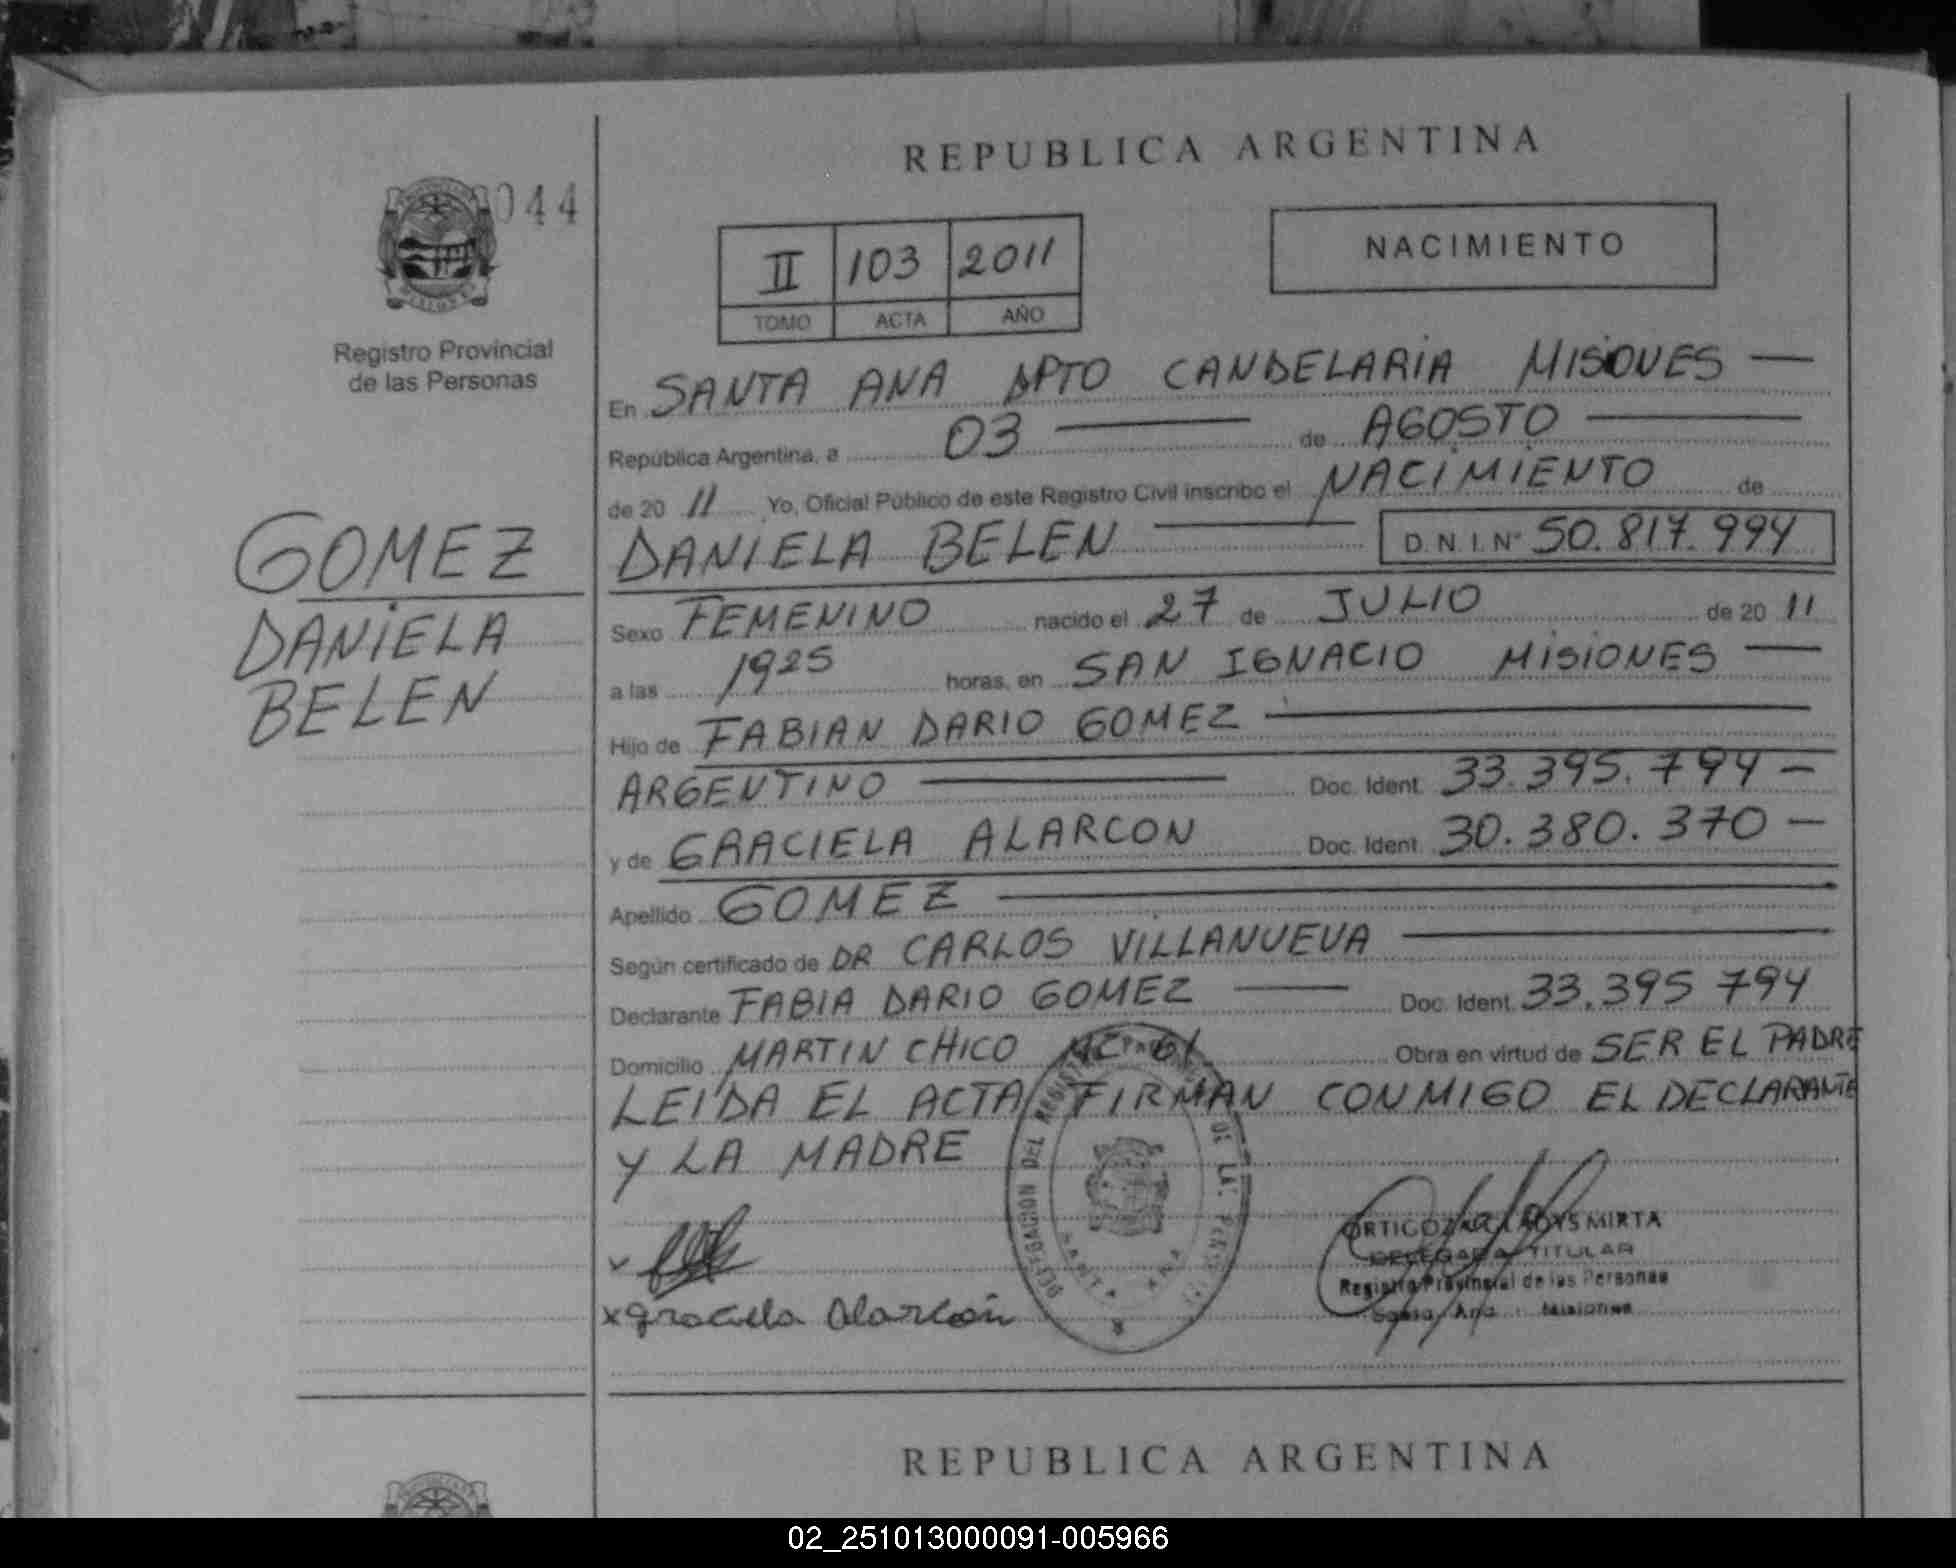 REPUBLICA ARGENTINA
044
NACIMIENTO
II 103 2011
TOMO ACTA AÑO
Registro Provincial
de las Personas
En SANTA ANA DPTO CANDELARIA MISIONES
República Argentina, a 03 de AGOSTO
de 20 11 Yo, Oficial Público de este Registro Civil inscribo el NACIMIENTO de
GOMEZ
DANIELA
BELEN
DANIELA BELEN D.N.I.Nº 50.817.994
Sexo FEMENINO nacido el 27 de JULIO de 20 11
a las 1925 horas, en SAN IGNACIO MISIONES
Hijo de FABIAN DARIO GOMEZ
ARGENTINO Doc. Ident. 33.395.794
y de GRACIELA ALARCON Doc. Ident. 30.380.370
Apellido GOMEZ
Según certificado de DR CARLOS VILLANUEVA
Declarante FABIA DARIO GOMEZ Doc. Ident. 33.395 794
Domicilio MARTIN CHICO MZ 61 Obra en virtud de SER EL PADRE
LEIDA EL ACTA FIRMAN CONMIGO EL DECLARANTE
Y LA MADRE
DELEGACION DEL REGISTRO DE LAS
SANTA ANA
x Graciela Alarcón
ORTIGOZA GLADYS MIRTA
DELEGADA TITULAR
Registro Provincial de las Personas
Santa Ana Misiones
REPUBLICA ARGENTINA
02_251013000091-005966